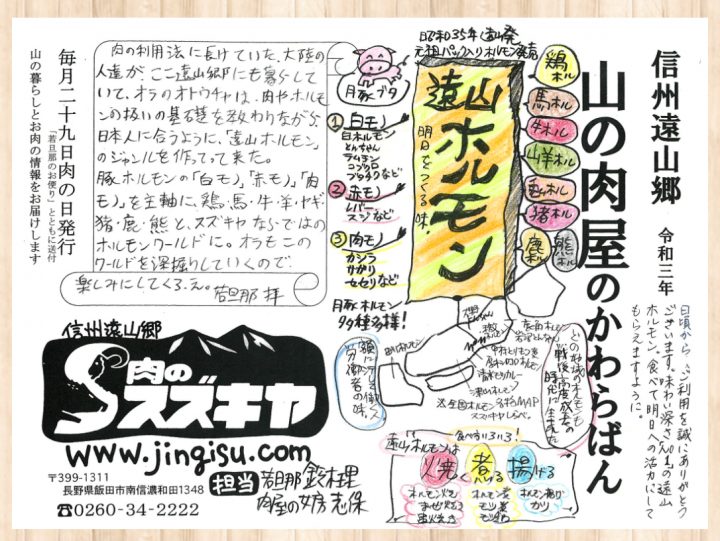 信州遠山郷
令和三年
山の肉屋のかわらばん
日頃から、ご利用を誠にありがとう
ございます。味わい深さNo.1の遠山
ホルモン。食べて明日への活力にして
もらえますように。
昭和35年遠山発
元祖パック入りホルモン発売
遠山ホルモン
明日をつくる味!
鶏ホル
馬ホル
牛ホル
山羊ホル
猪ホル
鹿ホル
熊ホル
豚ブタ
①白モノ
白ホルモン
とんちゃん
ラムチョン
コブクロ
ブロチクなど
②赤モノ
レバー
スジなど
③肉モノ
カシラ
サガリ
セセリなど
豚ホルモン
多種多様!
肉の利用法に長けていた、大陸の
人達がここ遠山郷にも暮らして
いて、オラのオトウチャは、肉やホルモ
ンの扱いの基礎を教わりながら
日本人に合うように、「遠山ホルモン」
のジャンルを作ってって来た。
豚ホルモンの「白モノ」、「赤モノ」、「肉
モノ」を主軸に、鶏・馬・牛・羊・ヤギ
猪・鹿・熊と、スズキヤならではの
ホルモンワールドに。オラもこの
ワールドを深掘りしていくので、
楽しみにしてくろえ。若旦那 拝
毎月二十九日肉の日発行
「若旦那のお便り」とともに送付
山の暮らしとお肉の情報をお届けします
どの地域のホルモンも
戦後・高度成長の
時代に生まれた
額に汗し働く
労働者の味
津山ホルモン
※全国ホルモン名物MAP
スズキヤしらべ。
信州遠山郷
肉のスズキヤ
www.jingisu.com
〒399-1311
長野県飯田市南信濃和田1348
☎0260-34-2222
担当 若旦那 鈴木理
肉屋の女房 志保
食べ方いろいろ!
遠山ホルモンは
焼く 煮る 揚げる